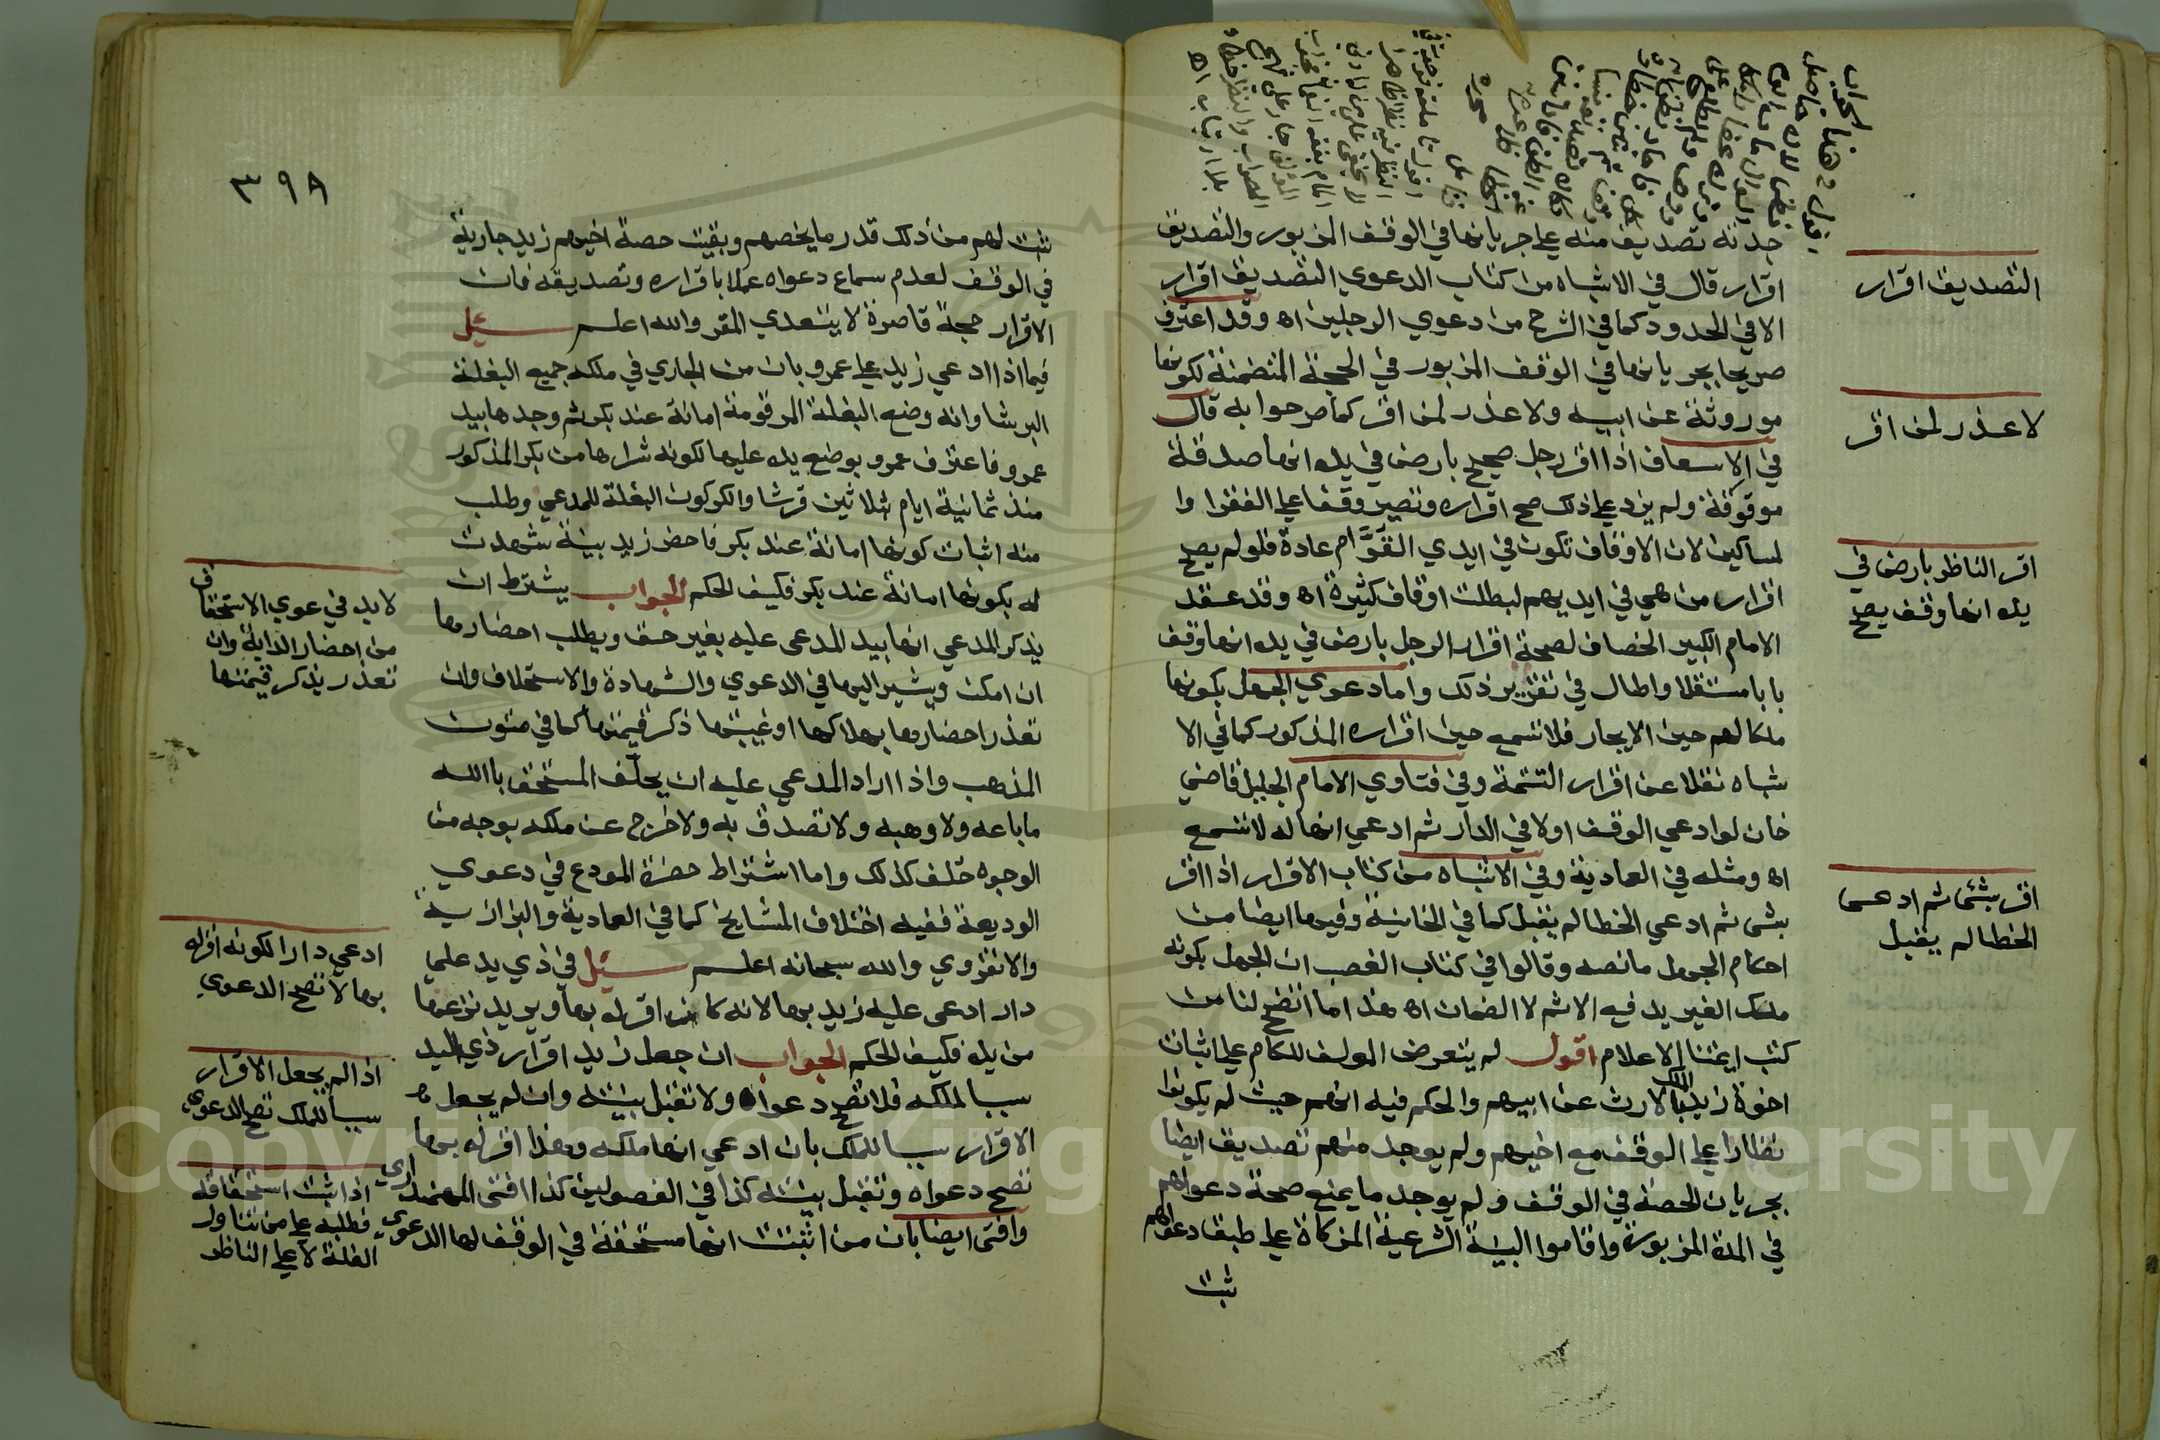 جدته تصديق منه على جريانها في الوقف المزبور والتصديق
اقرار قال في الاشباه من كتاب الدعوي التصديق اقرار
الا في الحدود كما في الشرح من دعوي الرجلين اه وقد اعترف
صريحا بجريانها في الوقف المزبور في الحجة المتضمنة لكونها
موروثة عن ابيه ولا عذر لمن اقر كما صرحوا به قال
في الاسعاف اذا اقر رجل صحيح بارض في يده انها صدقة
موقوفة ولم يزد على ذلك صح اقراره وتصير وقفا على الفقرا وا
لمساكين لان الاوقاف تكون في ايدي القوام عادة فلو لم يصح
اقرار من هي في ايديهم لبطلت اوقاف كثيرة اه وقد عقد
الامام الكبير الخصاف لصحة اقرار الرجل بارض في يده انها وقف
بابا مستقلا واطال في تقرير ذلك واما دعوي الجهل بكونها
ملكا لهم حين الايجار فلا تسمع حين اقراره المذكور كما في الا
شباه نقلا عن اقرار التتمة وفي فتاوي الامام الجليل قاضي
خان لو ادعي الوقف اولا في الدار ثم ادعي انها له لا تسمع
اه ومثله في العمادية وفي الاشباه من كتاب الاقرار اذا اقر
بشي ثم ادعي الخطا لم يقبل كما في الخانية وفيها ايضا من
احكام الجهل ما نصه وقالوا في كتاب الغصب ان الجهل بكونه
ملك الغير يدفع الاثم لا الضمان اه هذا ما اتضح لنا من
كتب ايمتنا الاعلام اقول لم يتعرض المولف للكلام على اثبات
اخوة زيد الملك بالارث عن ابيهم والحكم فيه انهم حيث لم يكونوا
نظارا على الوقف مع اخيهم ولم يوجد منهم تصديق ايضا
بجريان الحصة في الوقف ولم يوجد ما يمنع صحة دعواهم
في المدة المزبورة واقاموا البينة الشرعية المزكاة على طبق دعواهم
ثبت
التصديق اقرار
لا عذر لمن اقر
اقر الناظر بارض في
يده انها وقف يصح
اقر بشئ ثم ادعى
الخطا لم يقبل
٣٩٨
ثبت لهم من ذلك قدر ما يخصهم وبقيت حصة اخيهم زيد جارية
في الوقف لعدم سماع دعواه عملا باقراره وتصديقه فان
الاقرار حجة قاصرة لا يتعدي المقر والله اعلم سئل
فيما اذا ادعي زيد على عمرو بان من الجاري في ملكه جميع البغلة
البرشا وانه وضع البغلة المرقومة امانة عند بكر ثم وجدها بيد
عمرو فاعترف عمرو بوضع يده عليها لكونه شراها من بكر المذكور
منذ ثمانية ايام بثلاثين قرشا وانكر كون البغلة للمدعي وطلب
منه اثبات كونها امانة عند بكر فاحضر زيد بينة شهدت
له بكونها امانة عند بكر فكيف الحكم الجواب يشترط ان
يذكر المدعي انها بيد المدعى عليه بغير حق ويطلب احضارها
ان امكن ويشير اليها في الدعوي والشهادة والاستحلاف وان
تعذر احضارها بهلاكها او غيبتها ذكر قيمتها كما في متون
المذهب واذا اراد المدعي عليه ان يحلف المستحق بالله
ما باعه ولا وهبه ولا تصدق به ولا خرج عن ملكه بوجه من
الوجوه حلف كذلك واما اشتراط حضرة المودع في دعوي
الوديعة ففيه اختلاف المشايخ كما في العمادية والبزازية
والانقروي والله سبحانه اعلم سئل في ذي يد على
دار ادعى عليه زيد بها لانه كان اقر له بها ويريد نزعها
من يده فكيف الحكم الجواب ان جعل زيد اقرار ذي اليد
سببا لملكه فلا تصح دعواه ولا تقبل بينته وان لم يجعل
الاقرار سببا للملك بان ادعي انها ملكه وهذا اقر له بها
تصح دعواه وتقبل بينته كذا في الفصولين كذا افتى المهمنداري
وافتى ايضا بان من اثبتت انها مستحقة في الوقف لها الدعوي
لا بد في دعوي الاستحقاق
من احضار الدابة وان
تعذر يذكر قيمتها
ادعي دارا لكونه اقر له
بها لا تصح الدعوي
اذا لم يجعل الاقرار
سببا للملك تصح الدعوي
اذا ثبت استحقاقه
فطلبه على من تناول
الغلة لا على الناظر
Copyright © King Saud University